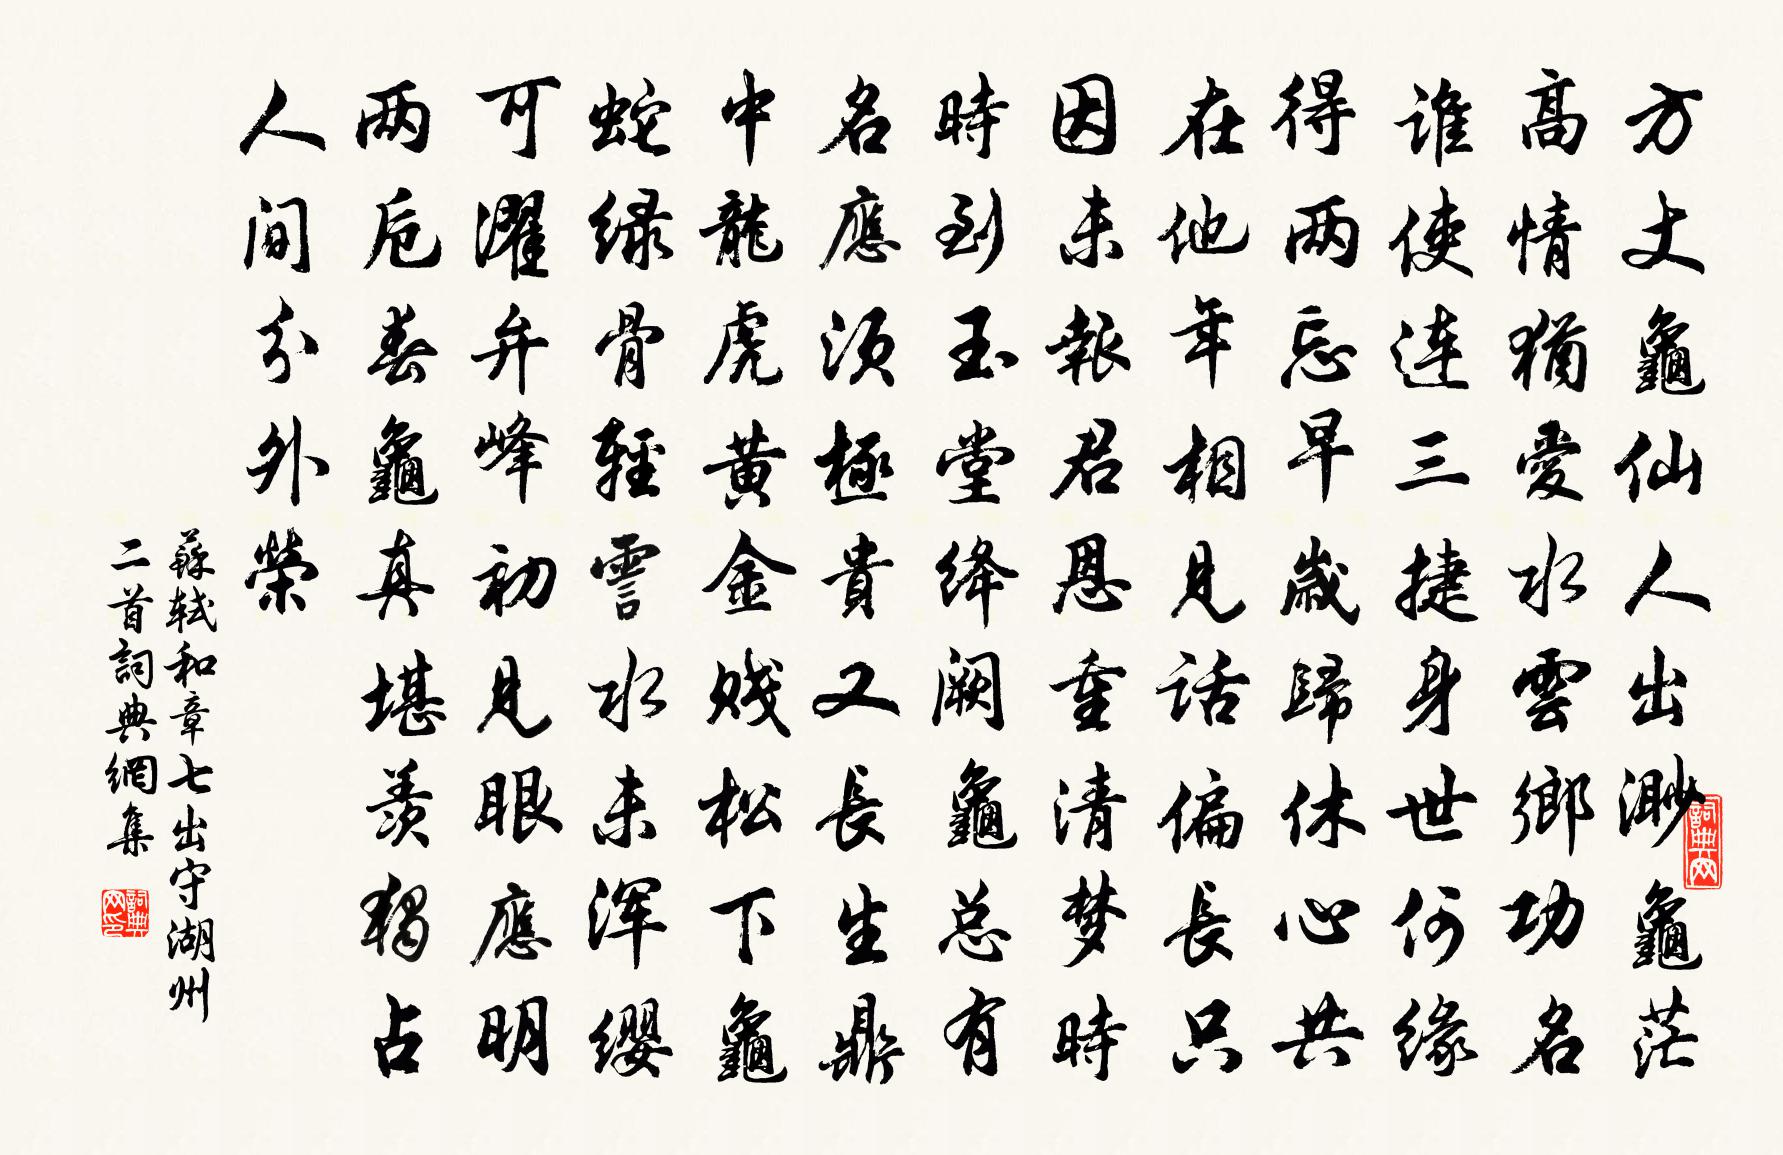 方丈龜仙人出渺龜茫
高情猶愛水雲鄉功名
谁使连三捷身世何缘
得两忘早歲歸休心共
在他年相見話偏長只
因未報君恩重清梦時
時到玉堂绛阙龜总有
名應须極貴又長生鼎
中龍虎黄金贱松下龜
蛇绿骨輕霅水未浑缨
可濯弁峰初見眼應明
两卮春龜真堪羡獨占
人间分外榮
蘇轼和章七出守湖州
二首詞典網集
詞典网
詞典网印